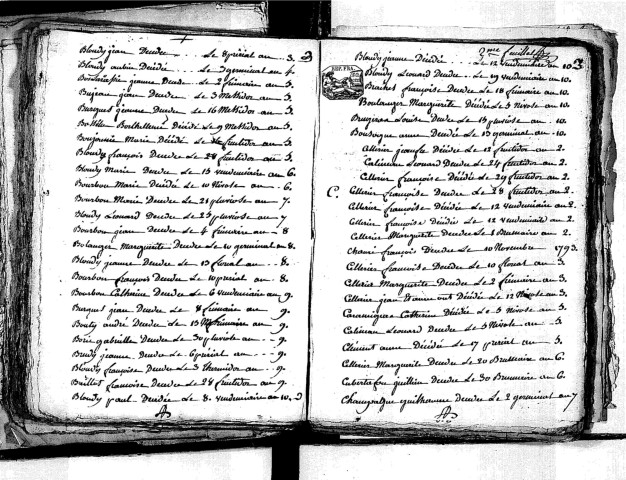 Blondy jean Decdee Le 8 prerial an 3.
Blondy aubin Décidé Le 3 germinal an 4.
jeanne Decdee Le 8 frimaire an 5.
Bujeau jeanne Decdee Le 3 Messidor an 5.
Burguet jeanne Decdee Le 16 Messidor an 5.
Décidé Le 9 Messidor an 5.
Boujamie Marie Décidé Le fructidor an 5.
Blondy françois Decdee Le 28 fructidor an 5.
Blondy Marie Decdee Le 15 vendemiaire an 6.
Bourbou Marie Décidée Le 10 Nivose an 6.
Bourbou Marie Decdee Le 21 pluviose an 7.
Blondy Léonard Decdee Le 25 pluviose an 7
Bourbou jean Decdee Le 4 frimaire an 8
Bolanger Marguerite Decdee Le 10 germinal an 8.
Blondy jeanne Decdee Le 13 floreal an 8.
Bourbou françois Decdee Le 10 prerial an 8.
Bourbou Catherine Decdee Le 6 vendemiaire an 9.
Burguet jean Decdee Le 8 frimaire an 9.
Bouty andré Decdee Le 15 frimaire an 9.
Borie gabrielle Decdee Le 30 pluviose an 9.
Brudy jeanne Decdee Le 6 prerial an 9.
Blondy françoise Decdee Le 3 thermidor an 9.
Baillot francoise Decdee Le 28 fructidor an 9.
Blondy paul Decdee Le 8 vendemiaire an 10.
2me feuillet
3
REP. FRA.
Blondy jeanne Décidée Le 12 vendemiaire an 10
Blondy Léonard Decdee Le 19 vendemiaire an 10.
françoise Decdee Le 18 frimaire an 10.
Boulanger Marguerite Décidée Le 5 Nivose an 10.
Louise Decdee Le 15 pluviose an 10.
anne Decdee Le 13 germinal an 10.
C.
Cellerier Décidée Le 12 fructidor an 2.
Calineau Léonard Decdee Le 24 fructidor an 2.
Cellerier françoise Décidée Le 29 fructidor an 2.
Cellerier françoise Decdee Le 28 fructidor an 2.
Cellerier françoise Décidée Le 12 vendemiaire an 2.
Cellerier françoise Décidée Le 12 vendemiaire an 2.
Cellerier Marguerite Decdee Le 1 Brumaire an 2.
françois Decdee Le 10 Novembre 1793.
Cellerier francoise Decdee Le 10 floreal an 3.
Cellerier Marguerite Decdee Le 8 frimaire an 3.
Cellerier jean Décidée Le 12 Nivose an 3.
Catherine Décidée Le 5 Nivose an 3.
Calineau Leonard Decdee Le 5 Nivose an 3.
Clément anne Décidée Le 17 prerial an 3.
Cellerier Marguerite Decdee Le 20 Brumaire an 6.
Decdee Le 30 Brumaire an 6.
Decdee Le 2 germinal an 7